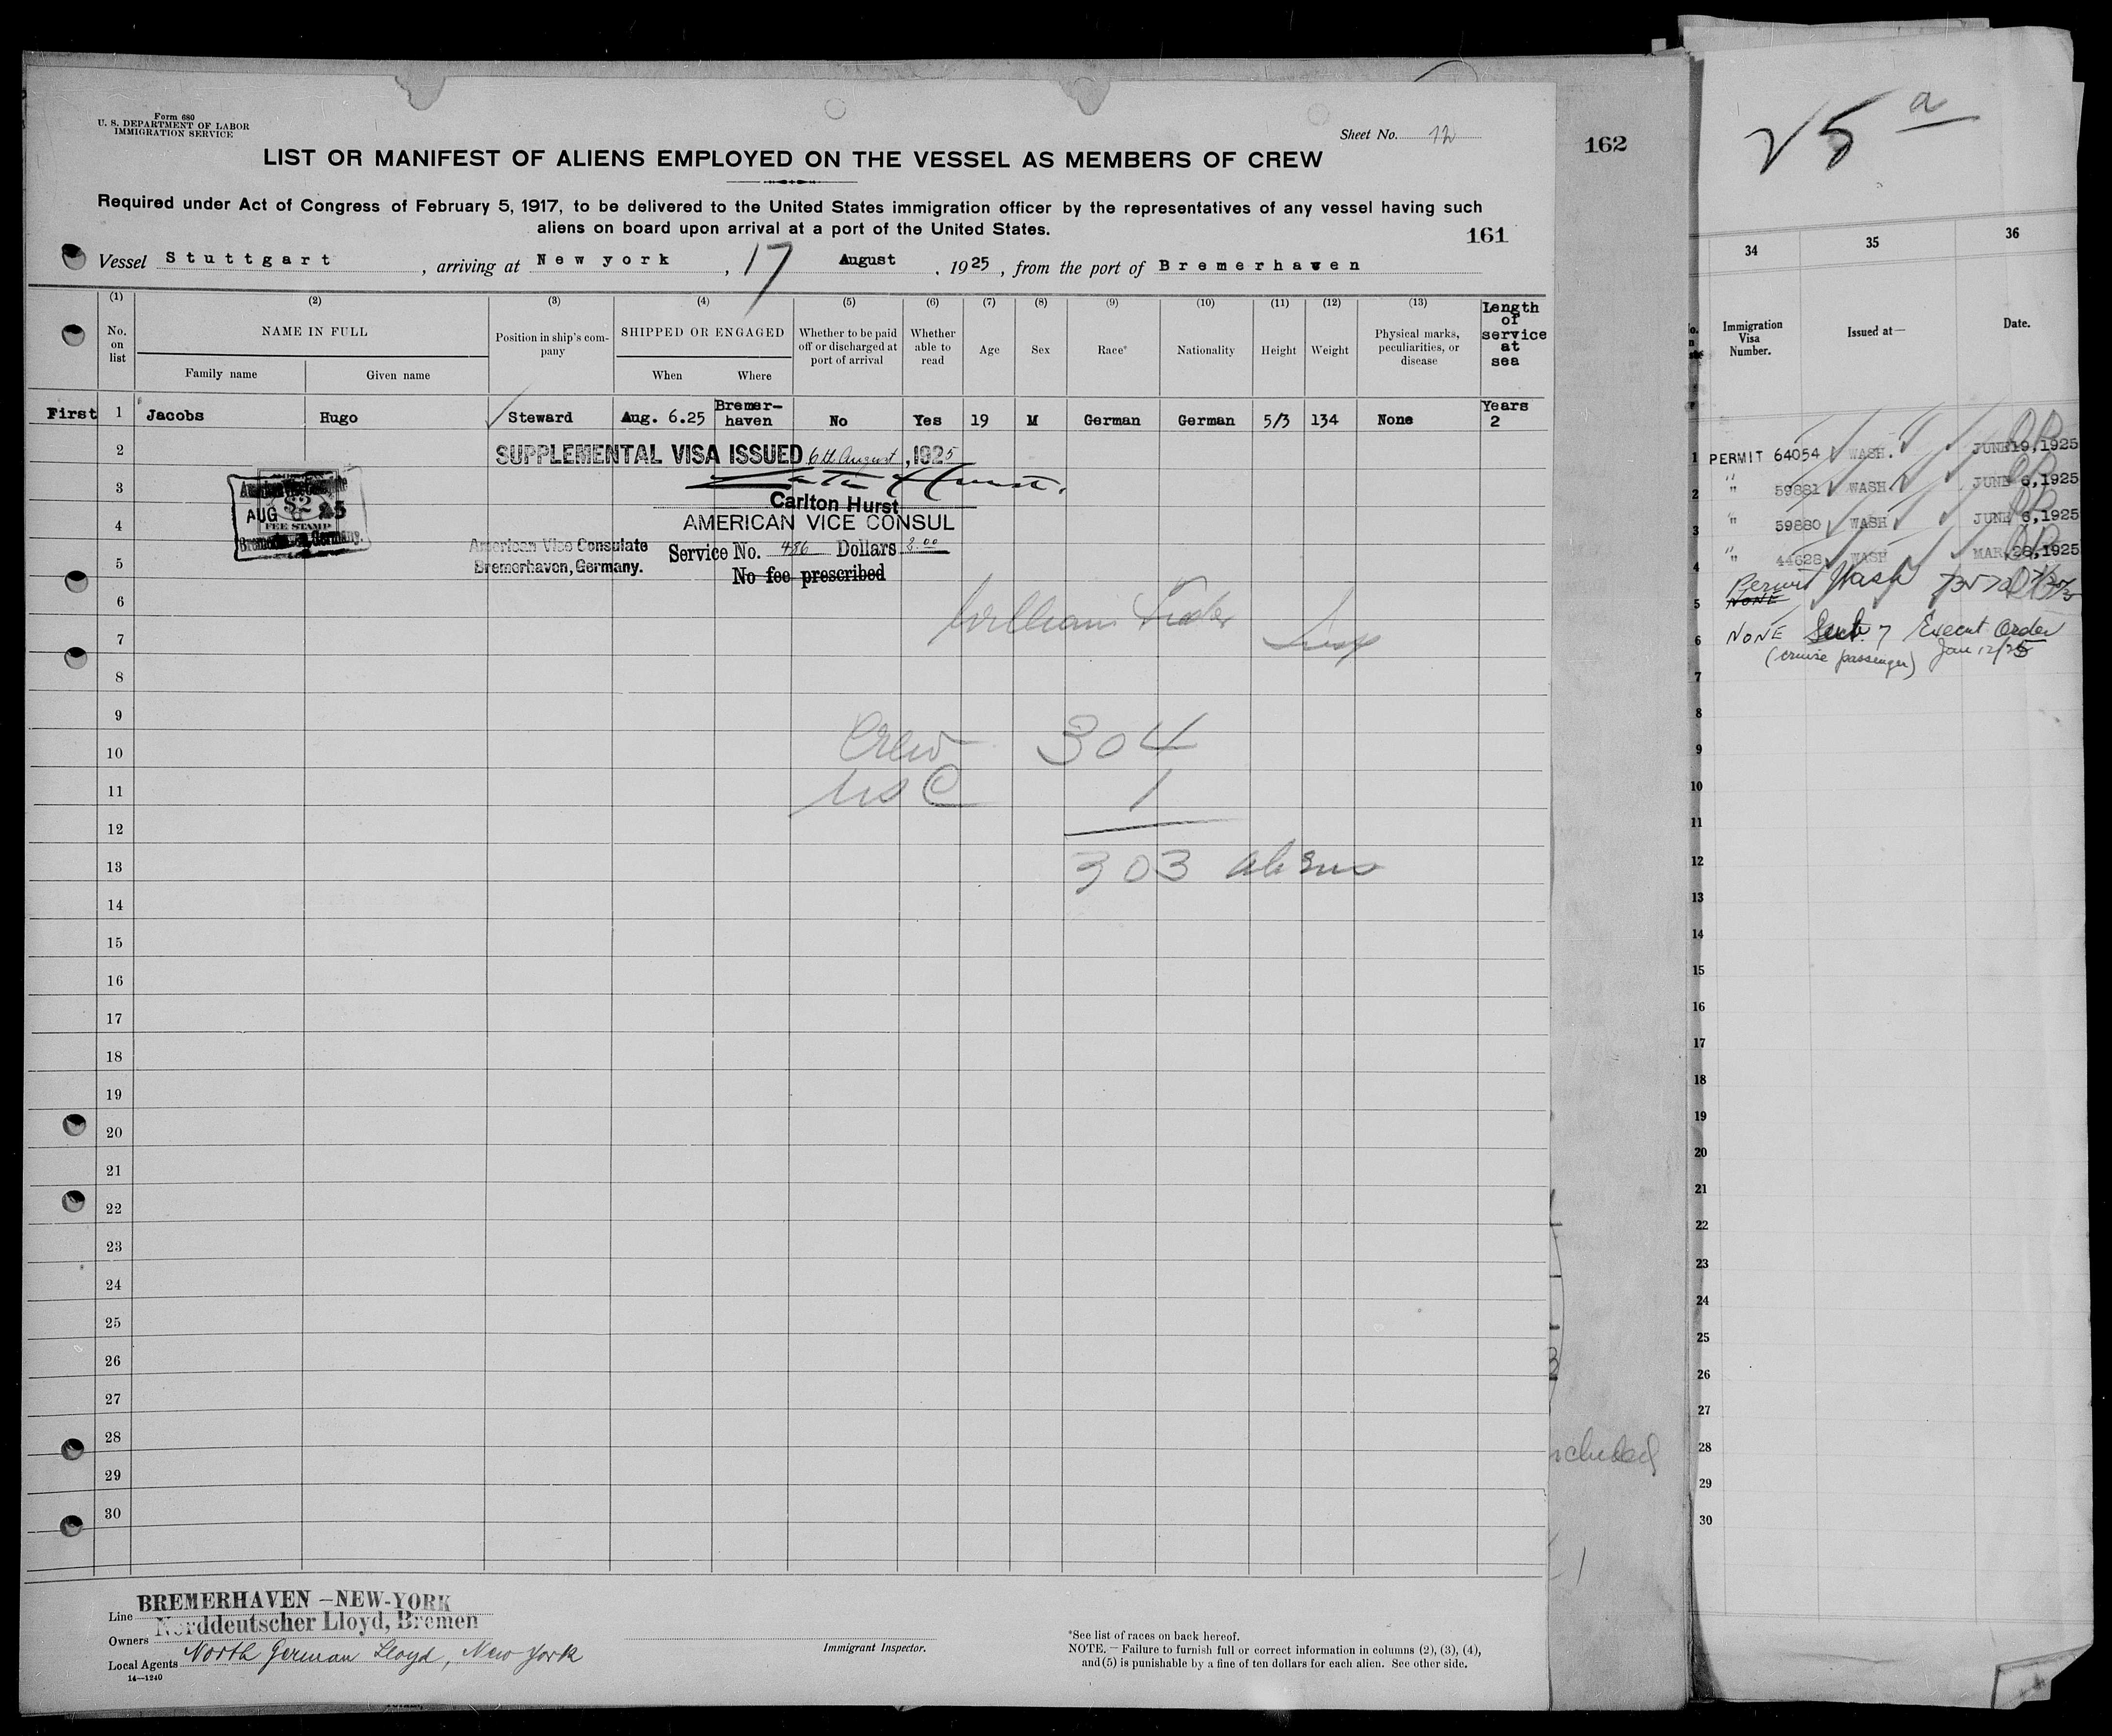 Form 680
U. S. DEPARTMENT OF LABOR
IMMIGRATION SERVICE
Sheet No. 12
LIST OR MANIFEST OF ALIENS EMPLOYED ON THE VESSEL AS MEMBERS OF CREW
Required under Act of Congress of February 5, 1917, to be delivered to the United States immigration officer by the representatives of any vessel having such
aliens on board upon arrival at a port of the United States.
161
Vessel Stuttgart, arriving at New york, 17 August, 1925, from the port of Bremerhaven
(1) (2) (3) (4) (5) (6) (7) (8) (9) (10) (11) (12) (13)
No. on list
NAME IN FULL
Family name
Given name
Position in ship's company
SHIPPED OR ENGAGED
When
Where
Whether to be paid off or discharged at port of arrival
Whether able to read
Age
Sex
Race*
Nationality
Height
Weight
Physical marks, peculiarities, or disease
Length of service at sea
First 1 Jacobs Hugo Steward Aug. 6.25 Bremer-haven No Yes 19 M German German 5/3 134 None Years 2
2
SUPPLEMENTAL VISA ISSUED 6th August, 1925
3
Carlton Hurst
4
AMERICAN VICE CONSUL
AUG 6 25
$2
FEE STAMP
Bremerhaven, Germany.
American Vice Consulate
Bremerhaven, Germany.
Service No. 486 Dollars 2.00
5
No fee prescribed
6
William
7
Insp
8
9
10
Crew 304
11
US C 1
12
13
303 aliens
14
15
16
17
18
19
20
21
22
23
24
25
26
27
28
29
30
Line BREMERHAVEN -NEW-YORK
Owners Norddeutscher Lloyd, Bremen
Local Agents North German Lloyd, New York
14-1240
Immigrant Inspector.
*See list of races on back hereof.
NOTE. — Failure to furnish full or correct information in columns (2), (3), (4),
and (5) is punishable by a fine of ten dollars for each alien. See other side.
162
25 a
34 35 36
Immigration Visa Number.
Issued at—
Date.
1 PERMIT 64054 WASH. JUNE 19, 1925
2 " 59881 WASH. JUNE 6, 1925
3 " 59880 WASH JUNE 6, 1925
4 " 44628 WASH MAR. 28, 1925
Permit Wash
5 NONE
6 NONE Sect. 7 Execut Order
(cruise passenger) Jan 12/25
7
8
9
10
11
12
13
14
15
16
17
18
19
20
21
22
23
24
25
26
27
28
29
30